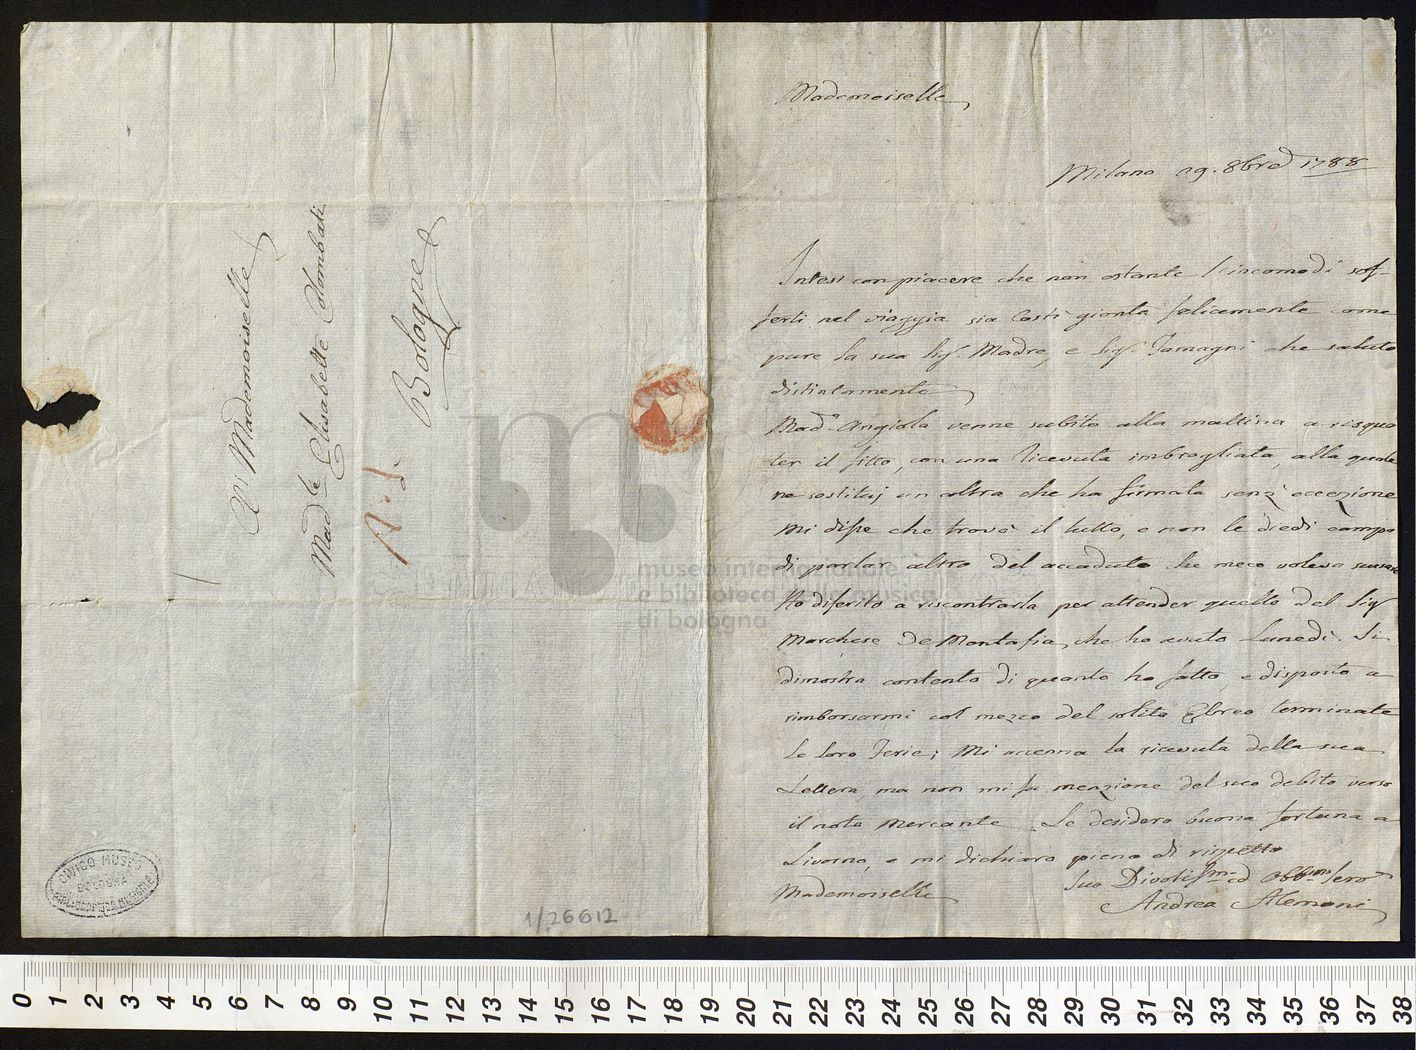 A Mademoiselle
Mad.le Elisabette Colombati
Bologne
1/26612
CIVICO MUSEO
BOLOGNA
BIBLIOGRAFICO MUSICALE
museo internazionale
e biblioteca della musica
di bologna
Mademoiselle
Milano 19. 8bre 1788
Intesi con piacere che non ostante l'incomodi sof-
ferti nel viaggio sia Costì gionta felicemente come
pure la sua Sig.a Madre, e Sig.r Tamagni che saluto
distintamente
Mad.a Angiola venne subito alla mattina a risquo
ter il fitto, con una Ricevuta imbrogliata, alla quale
ne sostituj un altra che ha firmata senz' eccezione
Mi disse che trovò il tutto, e non le diedi campo
di parlar altro del accaduto che meco voleva scusar
Ho diferito a riscontrarla per attender quello del Sig.r
Marchese De Montafia, che ho avuto Lunedì. Si
dimostra contento di quanto ho fatto, e disposto a
rimborsarmi col mezzo del solito Ebreo terminate
le loro Ferie; Mi accenna la ricevuta della sua
Lettera, ma non mi fa menzione del suo debito verso
il noto Mercante. Le desidero buona fortuna a
Livorno, e mi dichiaro pieno di rispetto
Mademoiselle
Suo Divotissmo ed Obb.mo Servo
Andrea Alemani
0 1 2 3 4 5 6 7 8 9 10 11 12 13 14 15 16 17 18 19 20 21 22 23 24 25 26 27 28 29 30 31 32 33 34 35 36 37 38